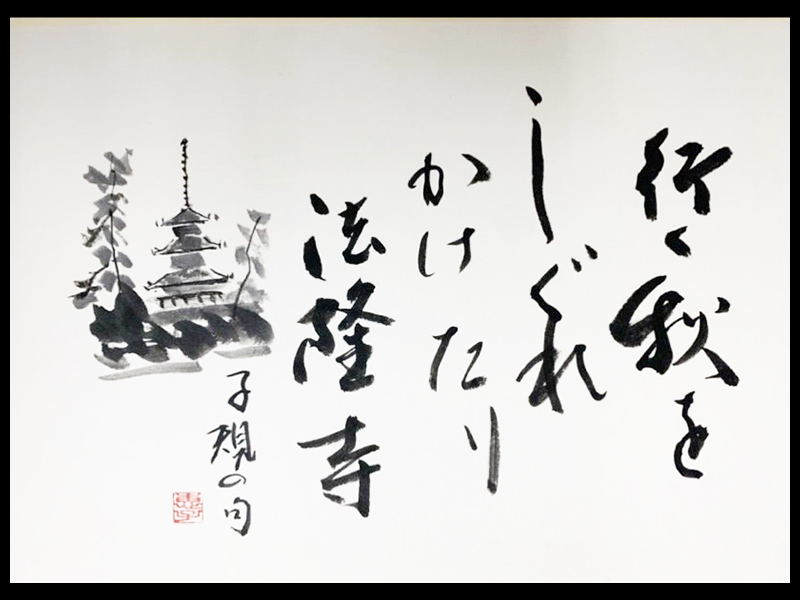 行く秋を
しぐれ
かけたり
法隆寺
子規の句